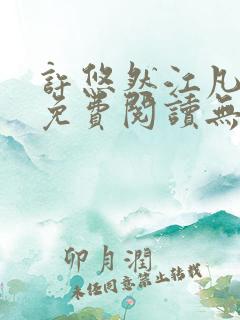 許悠然江凡
免費閱讀無
卯月潤
未經同意禁止轉載